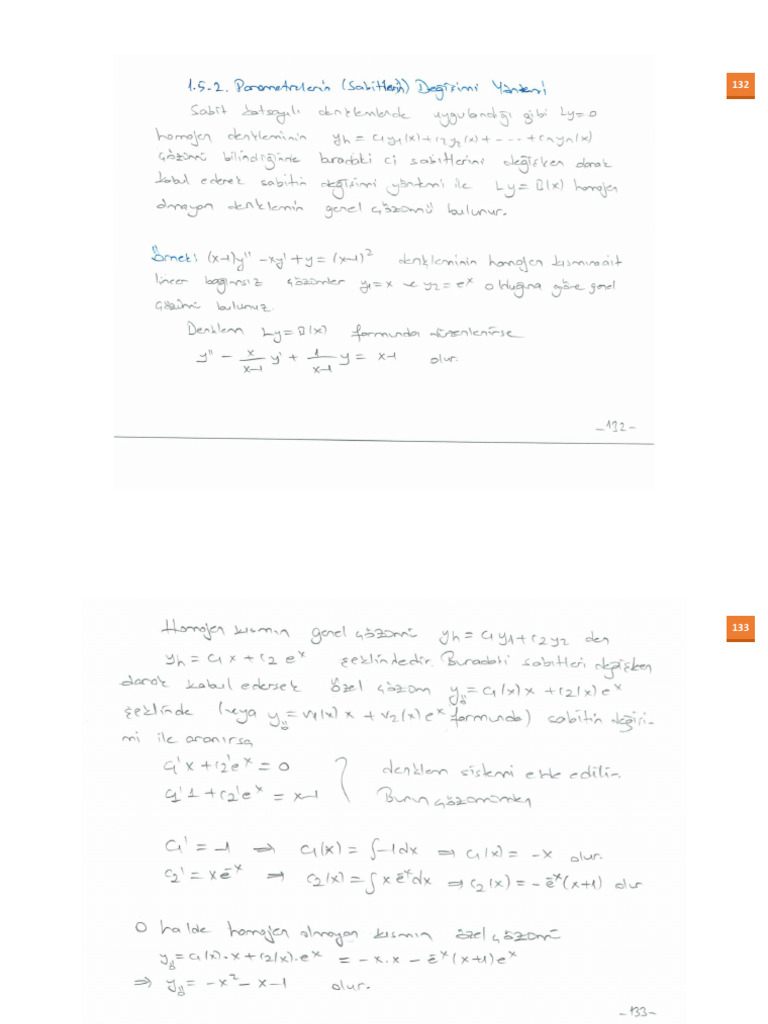 132
1.5.2. Parametrelerin (Sabitlerin) Değişimi Yöntemi
Sabit katsayılı denklemlerde uygulandığı gibi Ly=0
homojen denkleminin yh = c1y1(x)+c2y2(x)+----+cnyn(x)
çözümü bilindiğinde buradaki ci sabitlerini değişken olarak
kabul ederek sabitin değişimi yöntemi ile Ly=B(x) homojen
olmayan denklemin genel çözümü bulunur.
Örnek: (x-1)y'' - xy' + y = (x-1)² denkleminin homojen kısmına ait
lineer bağımsız çözümler y1=x ve y2=eˣ olduğuna göre genel
çözümü bulunuz.
Denklem Ly=B(x) formunda düzenlenirse
y'' - x/(x-1) y' + 1/(x-1) y = x-1 olur.
-132-
133
Homojen kısmın genel çözümü yh = c1y1+c2y2 den
yh = c1x + c2eˣ şeklindedir. Buradaki sabitleri değişken
olarak kabul edersek özel çözüm yö = c1(x)x + c2(x)eˣ
şeklinde (veya yö = v1(x)x + v2(x)eˣ formunda) sabitin değişi-
mi ile aranırsa
c1'x + c2'eˣ = 0 } denklem sistemi elde edilir.
c1'1 + c2'eˣ = x-1 } Bunun çözümünden
c1' = -1 ⇒ c1(x) = ∫-1dx ⇒ c1(x) = -x olur.
c2' = xe⁻ˣ ⇒ c2(x) = ∫xe⁻ˣdx ⇒ c2(x) = -e⁻ˣ(x+1) olur
O halde homojen olmayan kısmın özel çözümü
yö = c1(x).x + c2(x).eˣ = -x.x - e⁻ˣ(x+1)eˣ
⇒ yö = -x² - x - 1 olur.
-133-